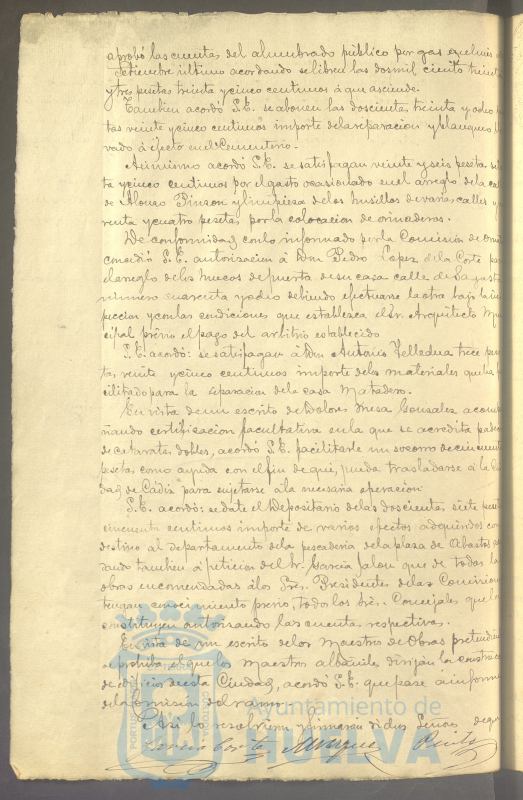 aprobó las cuentas del alumbrado público por gas
Setiembre último acordando se libren las dosmil ciento treinta
y tres pesetas treinta y cinco centimos á que asciende.
Tambien acordó S.E. se abonen las doscientas treinta y ocho pe
tas veinte y cinco centimos importe de la reparacion y blanqueo lle
vado á efecto en el Cementerio.-
Asimismo acordó S.E. se satisfagan veinte y seis pesetas
ta y cinco centimos por el gasto ocasionado en el arreglo de la ca
de Alonso Pinzon y limpieza de los husillos de varias calles y
renta y cuatro pesetas por la colocacion de orinaderos.
De conformidad con lo informado por la Comision de Orna
concedió S.E. autorizacion á Don Pedro Lopez de la Corte pa
el arreglo de los huecos de puerta de su casa calle de La
número cuarenta y ocho debiendo efectuarse la obra bajo la ins
peccion y con las condiciones que establezca el Sr. Arquitecto Mu
cipal prévio el pago del arbitrio establecido
S.E. acordó: se satisfagan á Don Antonio trece pese
tas veinte y cinco centimos importe de los materiales que ha
cilitado para la reparacion de la casa Matadero.
En vista de un escrito de Dolores Mesa Gonzalez acom
ñando certificacion facultativa en la que se acredita padec
de cataratas dobles, acordó S.E. facilitarle un socorro de cincuenta
pesetas como ayuda con el fin de que, pueda trasladarse á la Ciu
dad de Cádiz para sujetarse á la necesaria operacion.
S.E. acordó: se date el Depositario de las doscientas siete peset
cincuenta centimos importe de varios efectos adquiridos con
destino al departamento de la pescaderia de la plaza de Abastos
dando tambien á peticion del Sr. Garcia Jalon que de todas las
obras encomendadas á los Sres. Presidentes de las Comision
tengan conocimiento prévio, todos los Sres. Concejales que las
constituyen autorizando las cuentas respectivas.
En vista de un escrito de los Maestros de Obras pretendien
se prohiba el que los maestros albañiles dirijan la construcc
de edificios de esta Ciudad, acordó S.E. que pase á informe
de la Comision del ramo.
Asi lo resolvieron y firmarán dichos Señores de que
Ayuntamiento de
HUELVA